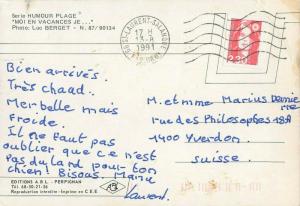 Serie HUMOUR PLAGE"
"MOI EN VACANCES JE..."
Photo: Luc BERGET - N. 87/90134
66 ST-LAURENT-SALANQUE
17 H
13-8
1991
2,30
Bien arrivés.
Très chaad.
Mer belle mais
froide.
Il ne faut pas
oublier que ce n'est
pas du lard pour ton
chien! Bisous.
M. et mme Marius
rue des Philosophes
1400 Yverdon
Suisse.
EDITIONS A.B.L - PERPIGNAN
Tél. 68-50-21-36
Reproduction interdite - Imprimé en C.E.E